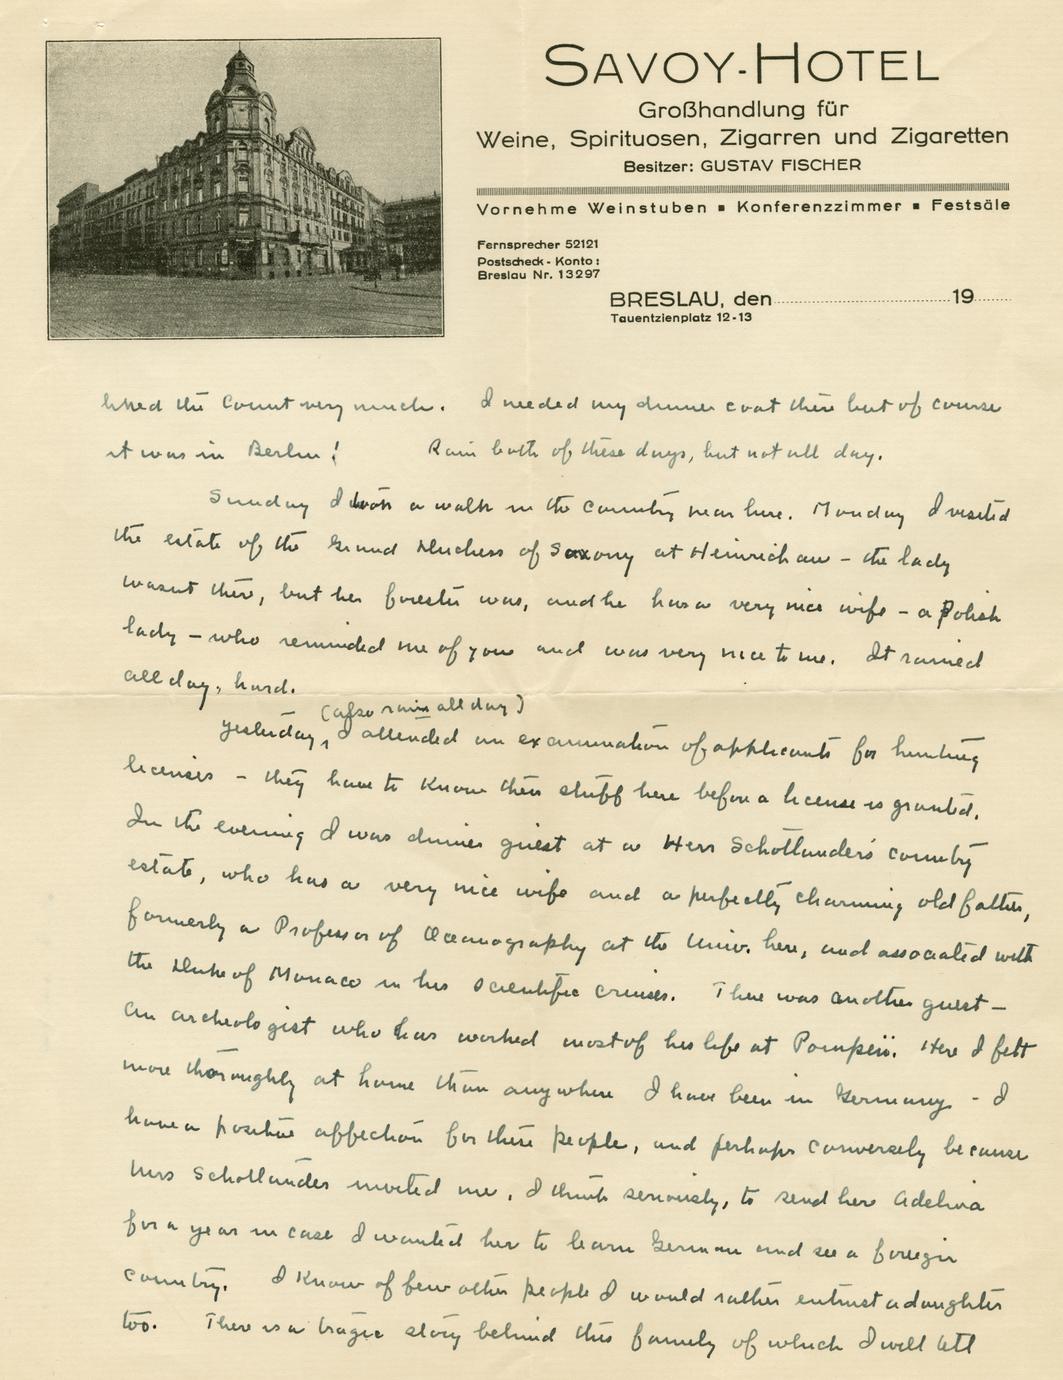 SAVOY-HOTEL
Großhandlung für
Weine, Spirituosen, Zigarren und Zigaretten
Besitzer: GUSTAV FISCHER
Vornehme Weinstuben ▪ Konferenzzimmer ▪ Festsäle
Fernsprecher 52121
Postscheck-Konto:
Breslau Nr. 13297
BRESLAU, den 19
Tauentzienplatz 12-13
liked the Count very much. I needed my dinner coat there but of course
it was in Berlin! Rain both of these days, but not all day.
Sunday I took a walk in the country near here. Monday I visited
the estate of the Grand Duchess of Saxony at Heinrichau – the lady
wasnt there, but her forester was, and he has a very nice wife – a Polish
lady – who reminded me of you and was very nice to me. It rained
all day, hard.
(also rain all day)
Yesterday, I attended an examination of applicants for hunting
licenses – they have to know their stuff here before a license is granted.
In the evening I was dinner guest at a Herr Schottlander's country
estate, who has a very nice wife and a perfectly charming old father,
formerly a Professor of Oceanography at the Univ. here, and associated with
the Duke of Monaco in his scientific cruises. There was another guest –
an archeologist who has worked most of his life at Pompeii. Here I felt
more thoroughly at home than anywhere I have been in Germany – I
have a positive affection for these people, and perhaps conversely because
Mrs Schottlander invited me, I think seriously, to send here Adelina
for a year in case I wanted her to learn German and see a foreign
country. I know of few other people I would rather entrust a daughter
too. There is a tragic story behind this family of which I will tell